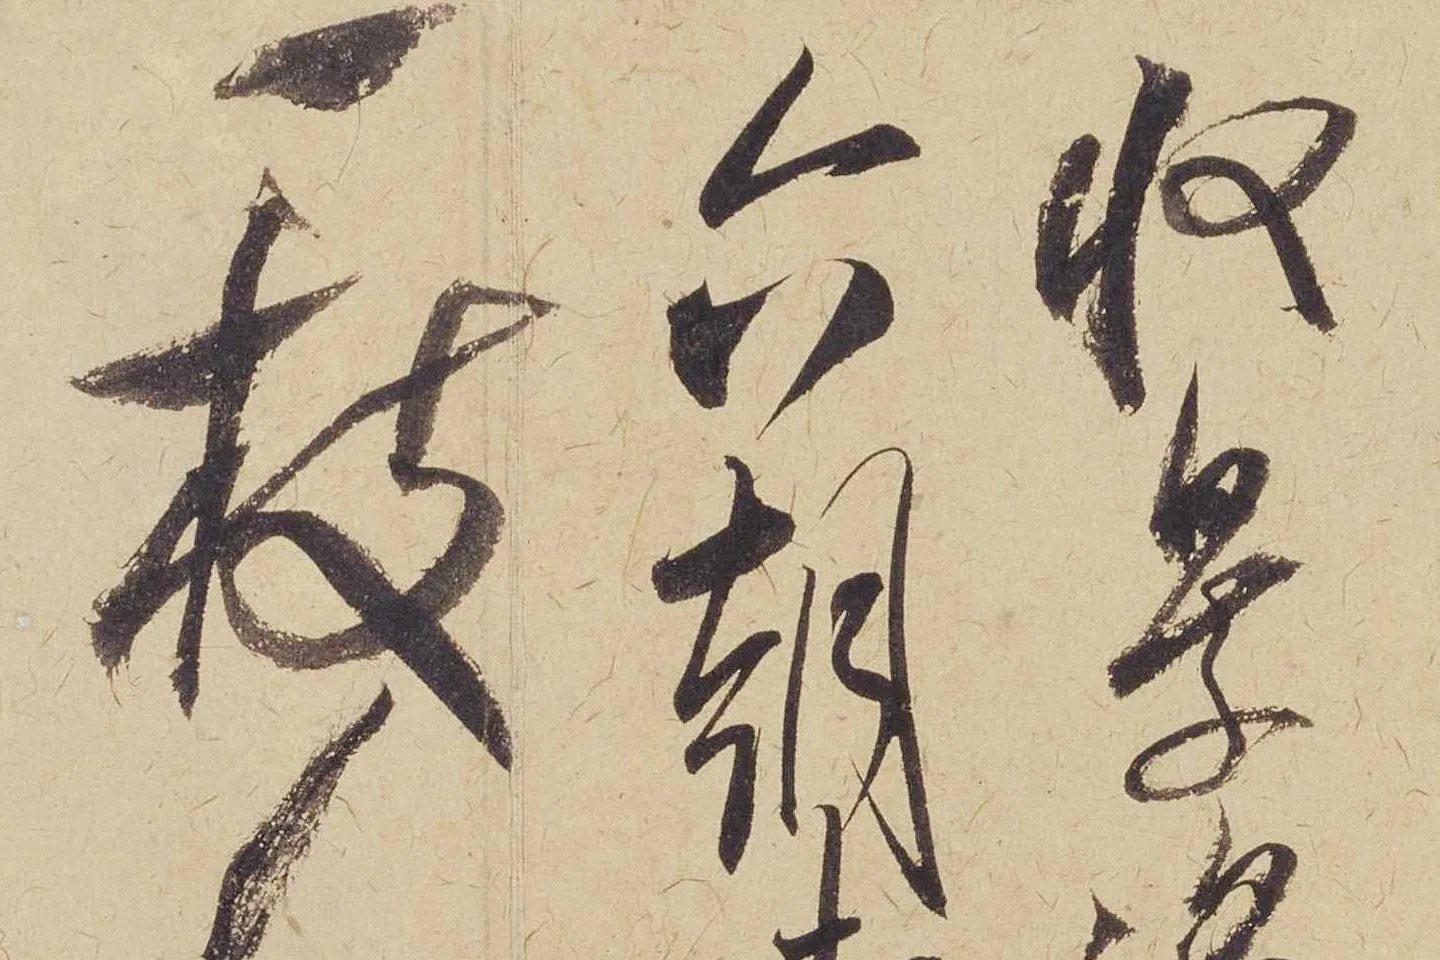 收景
六朝
一枝